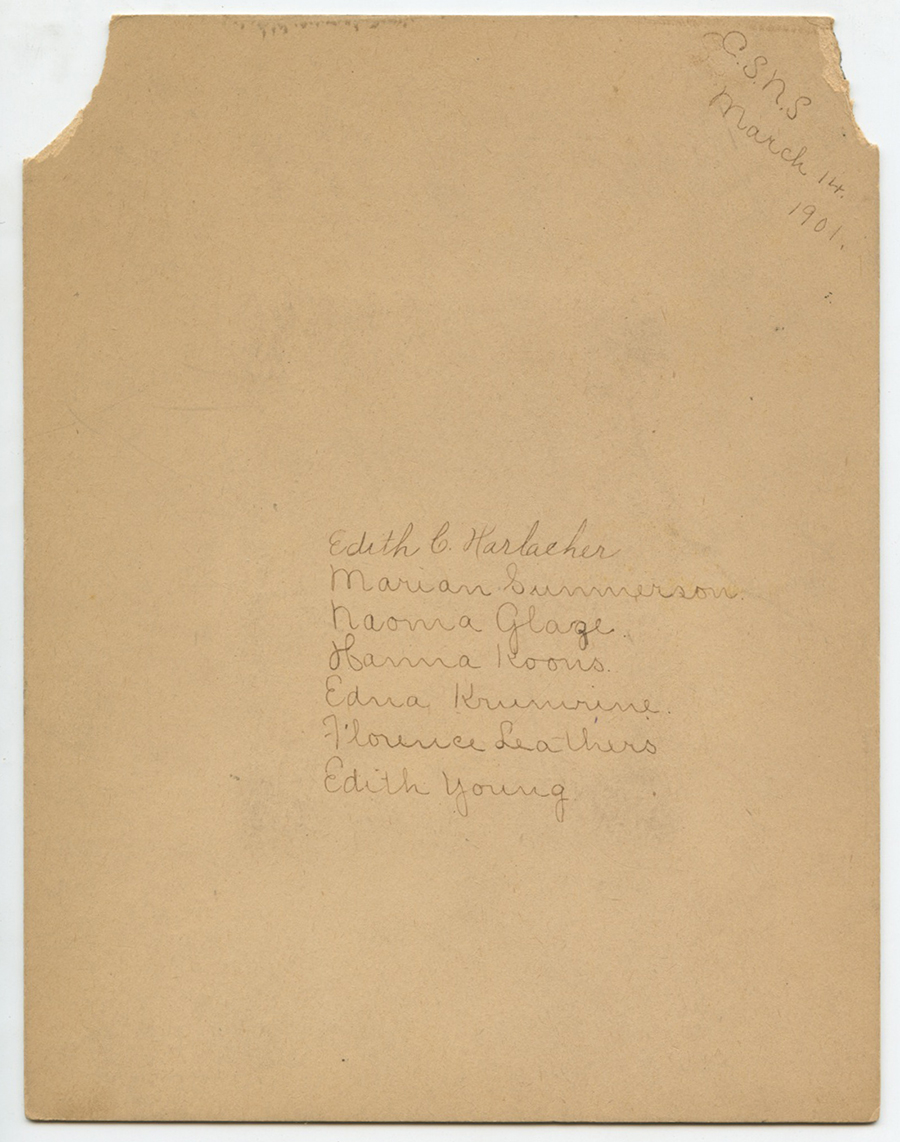 C.S.N.S
March 14.
1901.
Edith C. Harlacher
Marian Summerson.
Naoma Glaze.
Hanna Koons.
Edna Krumrine.
Florence Leathers
Edith Young